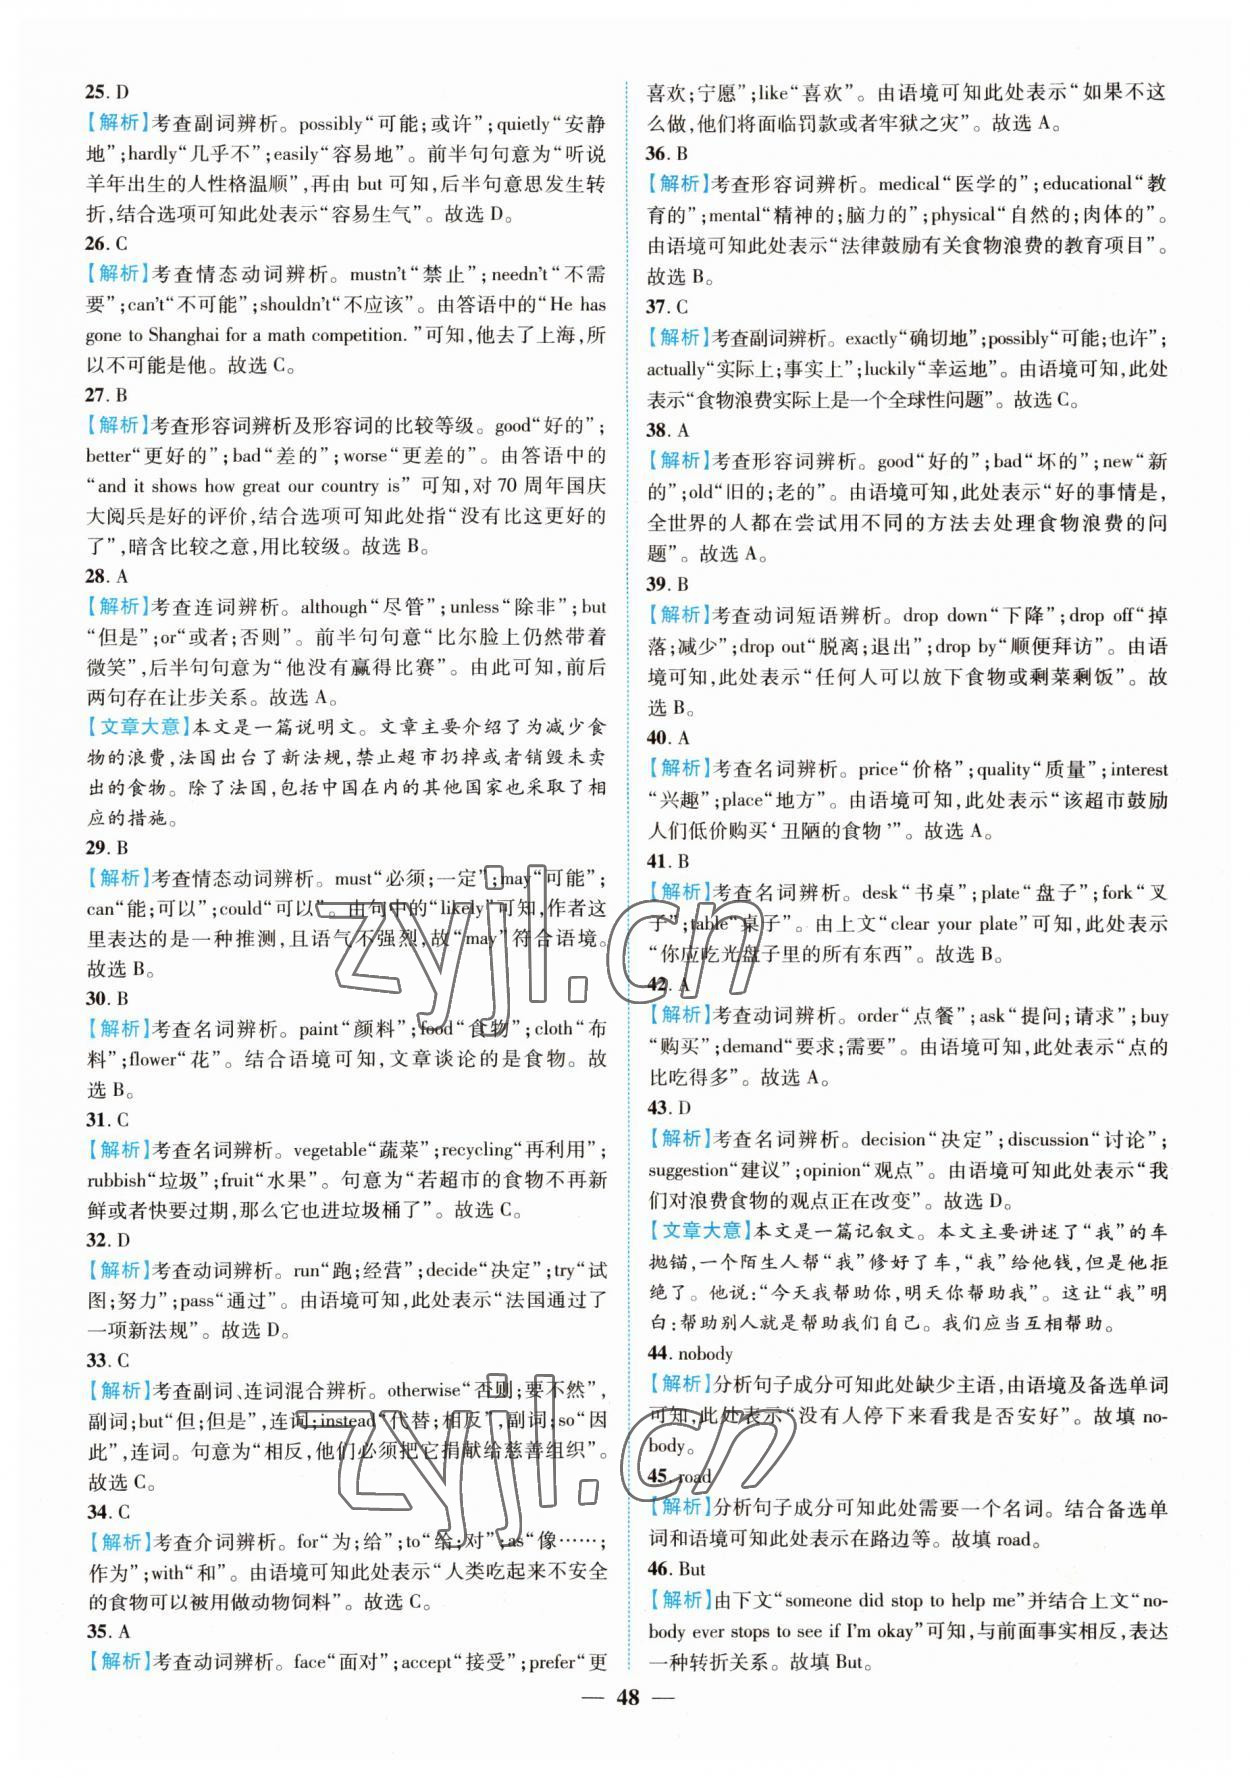 25. D
【解析】考查副词辨析。possibly“可能;或许”;quietly“安静
地”;hardly“几乎不”;easily“容易地”。前半句句意为“听说
羊年出生的人性格温顺”,再由 but 可知,后半句意思发生转
折,结合选项可知此处表示“容易生气”。故选 D。
26. C
【解析】考查情态动词辨析。mustn't“禁止”;needn't“不需
要”;can't“不可能”;shouldn't“不应该”。由答语中的“He has
gone to Shanghai for a math competition.”可知,他去了上海,所
以不可能是他。故选 C。
27. B
【解析】考查形容词辨析及形容词的比较等级。good“好的”;
better“更好的”;bad“差的”;worse“更差的”。由答语中的
“and it shows how great our country is”可知,对 70 周年国庆
大阅兵是好的评价,结合选项可知此处指“没有比这更好的
了”,暗含比较之意,用比较级。故选 B。
28. A
【解析】考查连词辨析。although“尽管”;unless“除非”;but
“但是”;or“或者;否则”。前半句句意“比尔脸上仍然带着
微笑”,后半句句意为“他没有赢得比赛”。由此可知,前后
两句存在让步关系。故选 A。
【文章大意】本文是一篇说明文。文章主要介绍了为减少食
物的浪费,法国出台了新法规,禁止超市扔掉或者销毁未卖
出的食物。除了法国,包括中国在内的其他国家也采取了相
应的措施。
29. B
【解析】考查情态动词辨析。must“必须;一定”;may“可能”;
can“能;可以”;could“可以”。由句中的“likely”可知,作者这
里表达的是一种推测,且语气不强烈,故“may”符合语境。
故选 B。
30. B
【解析】考查名词辨析。paint“颜料”;food“食物”;cloth“布
料”;flower“花”。结合语境可知,文章谈论的是食物。故
选 B。
31. C
【解析】考查名词辨析。vegetable“蔬菜”;recycling“再利用”;
rubbish“垃圾”;fruit“水果”。句意为“若超市的食物不再新
鲜或者快要过期,那么它也进垃圾桶了”。故选 C。
32. D
【解析】考查动词辨析。run“跑;经营”;decide“决定”;try“试
图;努力”;pass“通过”。由语境可知,此处表示“法国通过了
一项新法规”。故选 D。
33. C
【解析】考查副词、连词混合辨析。otherwise“否则;要不然”,
副词;but“但;但是”,连词;instead“代替;相反”,副词;so“因
此”,连词。句意为“相反,他们必须把它捐献给慈善组织”。
故选 C。
34. C
【解析】考查介词辨析。for“为;给”;to“给;对”;as“像……;
作为”;with“和”。由语境可知此处表示“人类吃起来不安全
的食物可以被用做动物饲料”。故选 C。
35. A
【解析】考查动词辨析。face“面对”;accept“接受”;prefer“更
喜欢;宁愿”;like“喜欢”。由语境可知此处表示“如果不这
么做,他们将面临罚款或者牢狱之灾”。故选 A。
36. B
【解析】考查形容词辨析。medical“医学的”;educational“教
育的”;mental“精神的;脑力的”;physical“自然的;肉体的”。
由语境可知此处表示“法律鼓励有关食物浪费的教育项目”。
故选 B。
37. C
【解析】考查副词辨析。exactly“确切地”;possibly“可能;也许”;
actually“实际上;事实上”;luckily“幸运地”。由语境可知,此处
表示“食物浪费实际上是一个全球性问题”。故选 C。
38. A
【解析】考查形容词辨析。good“好的”;bad“坏的”;new“新
的”;old“旧的;老的”。由语境可知,此处表示“好的事情是,
全世界的人都在尝试用不同的方法去处理食物浪费的问
题”。故选 A。
39. B
【解析】考查动词短语辨析。drop down“下降”;drop off“掉
落;减少”;drop out“脱离;退出”;drop by“顺便拜访”。由语
境可知,此处表示“任何人可以放下食物或剩菜剩饭”。故
选 B。
40. A
【解析】考查名词辨析。price“价格”;quality“质量”;interest
“兴趣”;place“地方”。由语境可知,此处表示“该超市鼓励
人们低价购买‘丑陋的食物’”。故选 A。
41. B
【解析】考查名词辨析。desk“书桌”;plate“盘子”;fork“叉
子”;table“桌子”。由上文“clear your plate”可知,此处表示
“你应吃光盘子里的所有东西”。故选 B。
42. A
【解析】考查动词辨析。order“点餐”;ask“提问;请求”;buy
“购买”;demand“要求;需要”。由语境可知,此处表示“点的
比吃得多”。故选 A。
43. D
【解析】考查名词辨析。decision“决定”;discussion“讨论”;
suggestion“建议”;opinion“观点”。由语境可知此处表示“我
们对浪费食物的观点正在改变”。故选 D。
【文章大意】本文是一篇记叙文。本文主要讲述了“我”的车
抛锚,一个陌生人帮“我”修好了车,“我”给他钱,但是他拒
绝了。他说:“今天我帮助你,明天你帮助我”。这让“我”明
白:帮助别人就是帮助我们自己。我们应当互相帮助。
44. nobody
【解析】分析句子成分可知此处缺少主语,由语境及备选单词
可知,此处表示“没有人停下来看我是否安好”。故填 no-
body。
45. road
【解析】分析句子成分可知此处需要一个名词。结合备选单
词和语境可知此处表示在路边等。故填 road。
46. But
【解析】由下文“someone did stop to help me”并结合上文“no-
body ever stops to see if I'm okay”可知,与前面事实相反,表达
一种转折关系。故填 But。
— 48 —
zyjl.cn
zyjl.cn